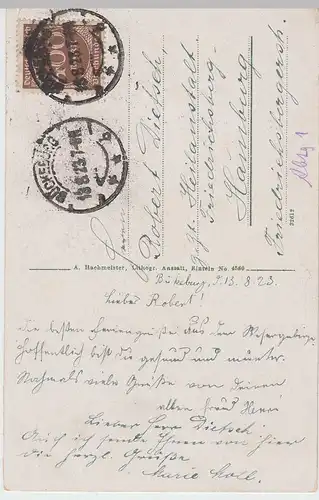 BÜCKEBURG
Herrn
Robert Dietsch,
z. Zt. Heilanstalt
Friedrichsberg
Hamburg
Friedrichsbergerstr.
A. Bachmeister, Lithogr. Anstalt, Eintein No. 4560
Bückeburg, d. 13.8.23
Lieber Robert!
Die besten Feriengrüße aus dem Wesergebirge.
Hoffentlich bist du gesund und munter.
Nochmals viele Grüße von Deinem
alten
Lieber Herr Dietsch!
Auch ich sende Ihnen von hier
die herzl. Grüße
Marie